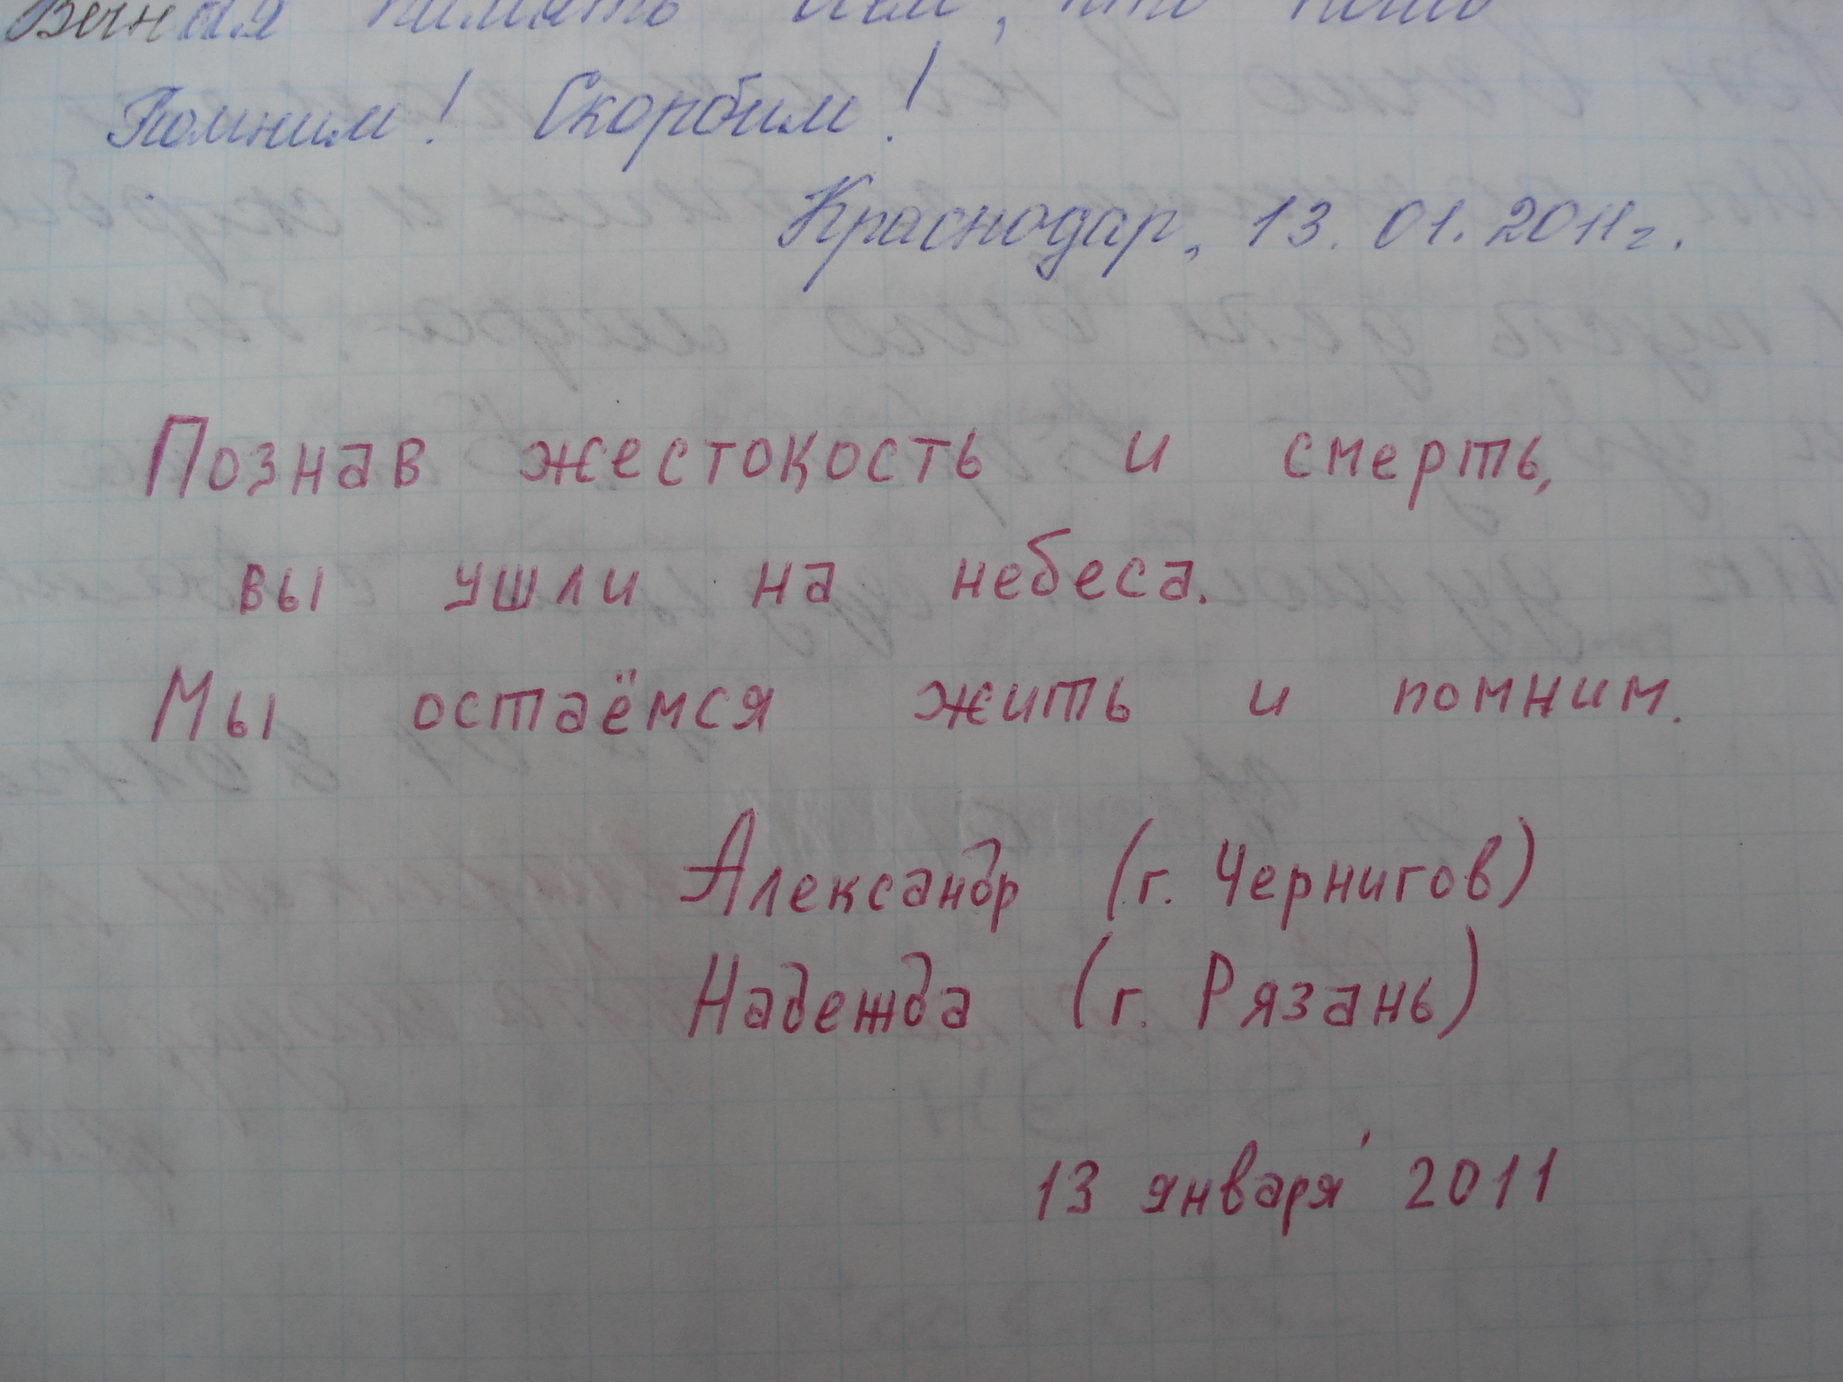 Вечная память тем, кто
Помним! Скорбим!
Краснодар, 13.01.2011г.
Познав жестокость и смерть,
вы ушли на небеса.
Мы остаёмся жить и помним.
Александр (г. Чернигов)
Надежда (г. Рязань)
13 января 2011